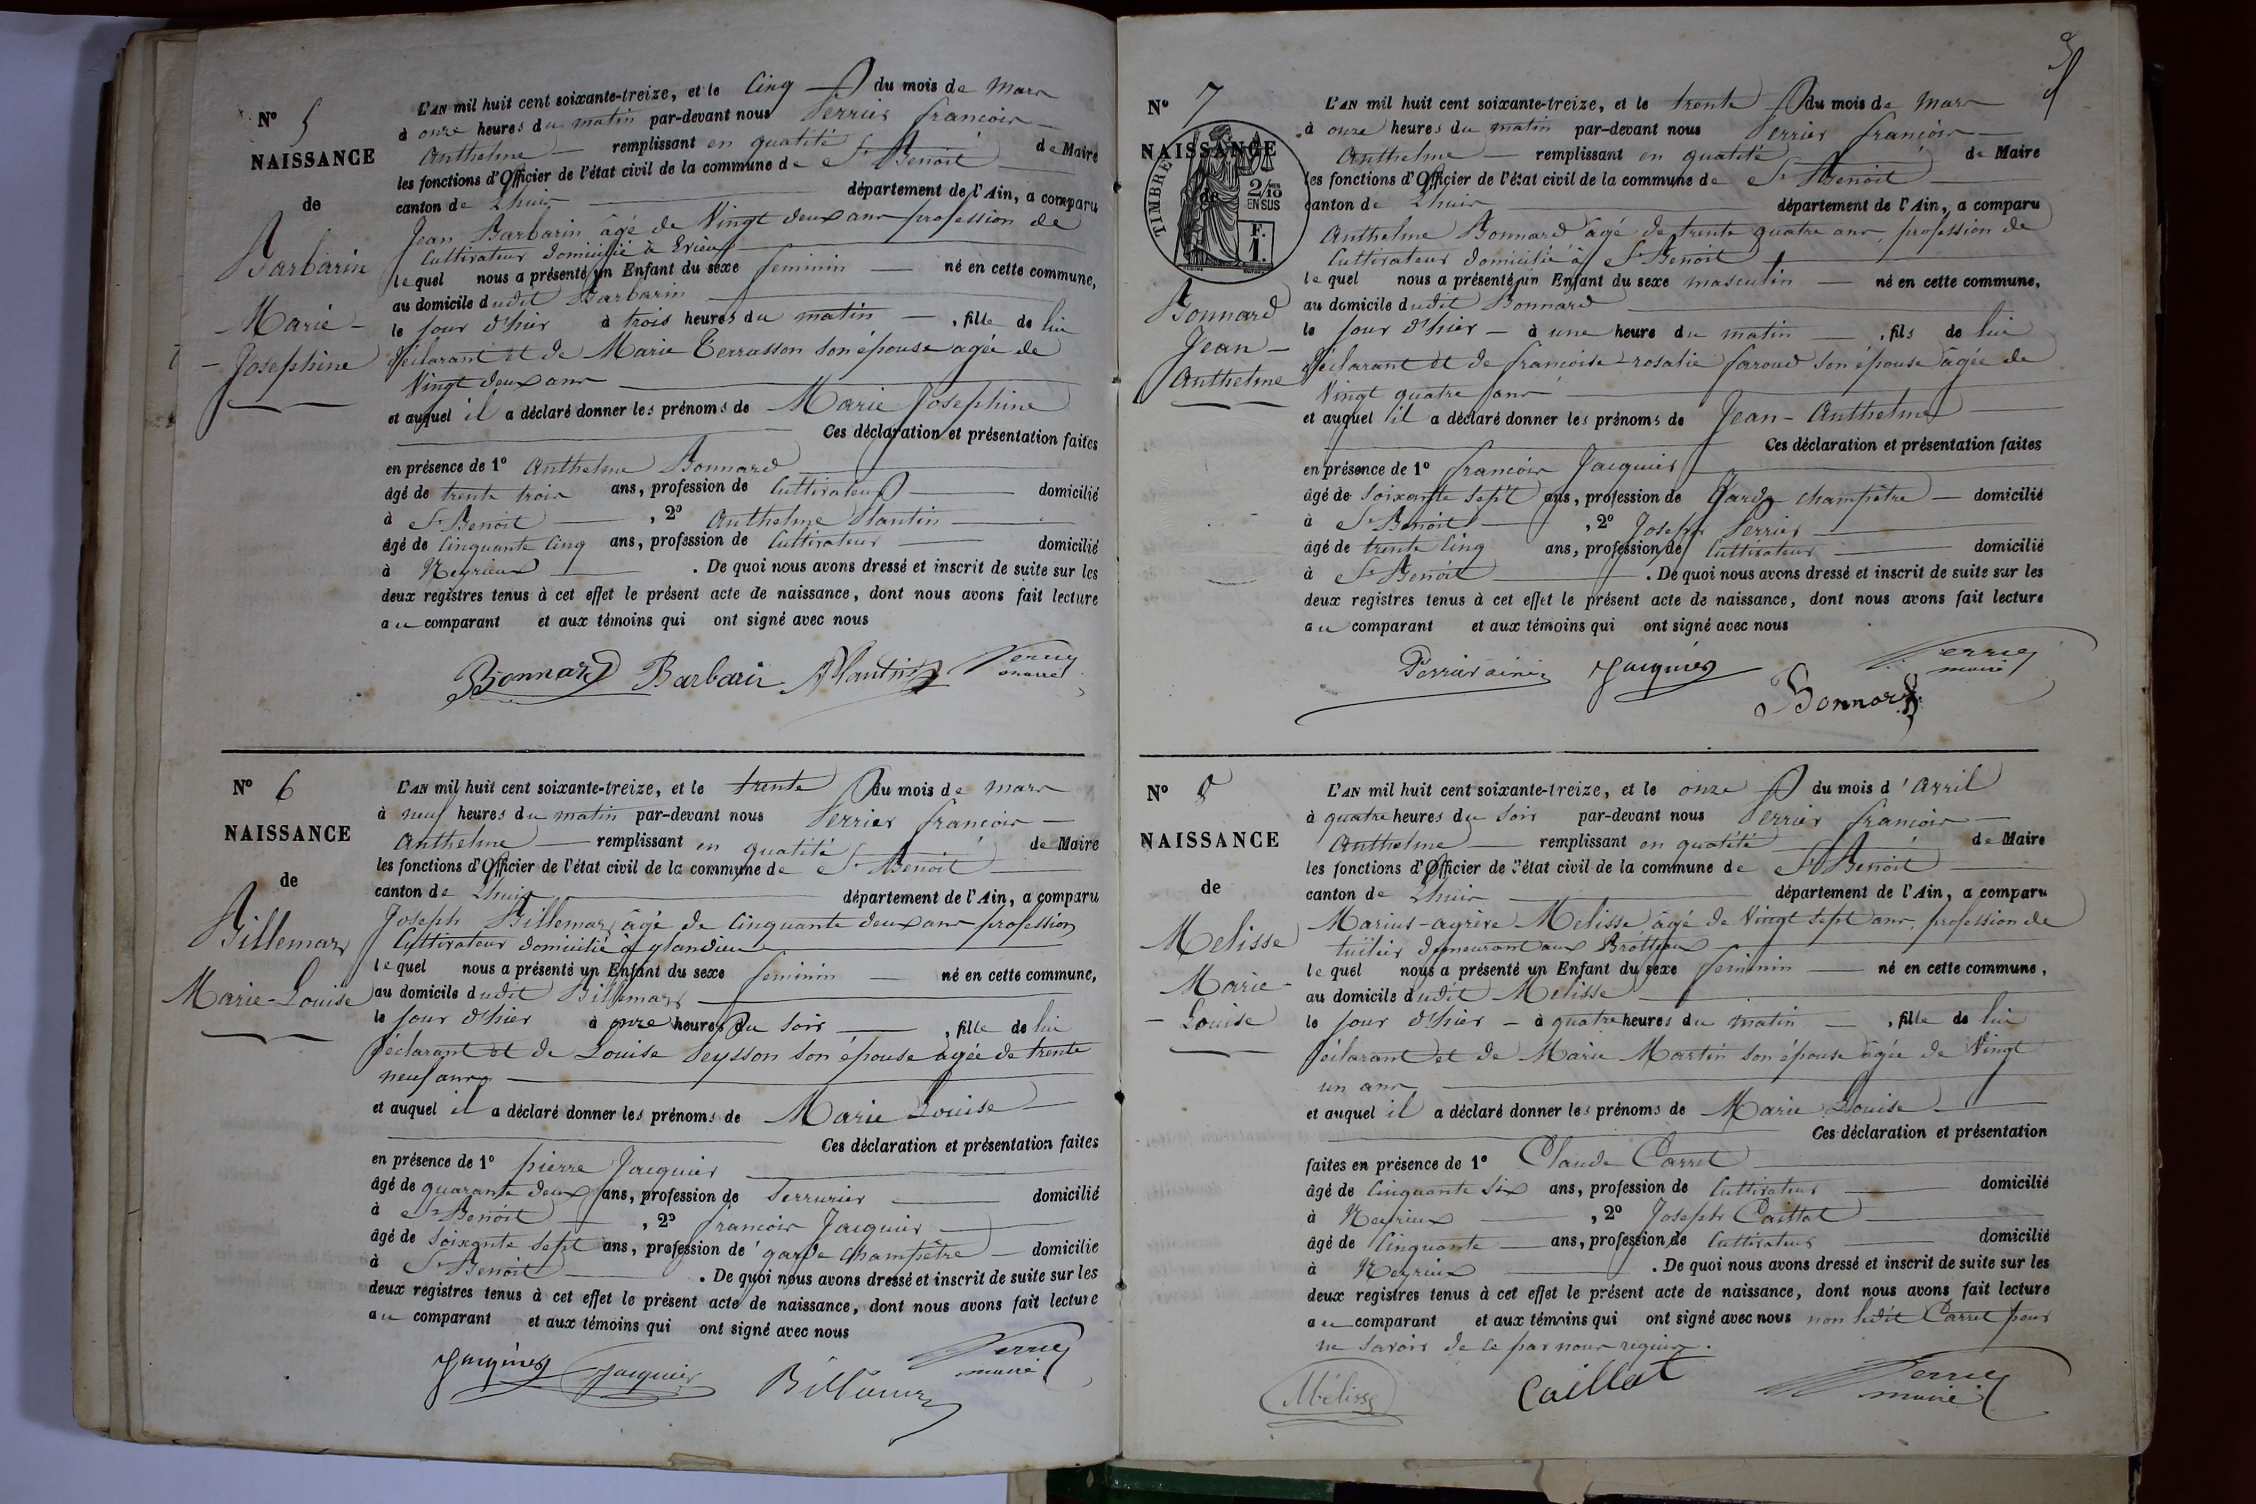 N° 5
NAISSANCE
de
Barbarin
Marie
Josephine
L'AN mil huit cent soixante-treize, et le Cinq du mois de Mars
à onze heures du matin par-devant nous Perrier françois
Anthelme remplissant en qualité de Maire
les fonctions d'Officier de l'état civil de la commune de St Benoit
canton de Lhuis département de l'Ain, a comparu
Jean Barbarin âgé de Vingt deux ans profession de
Cultivateur domicilié à Evieu
lequel nous a présenté un Enfant du sexe feminin né en cette commune,
au domicile dudit Barbarin
le jour d'hier à trois heures du matin, fille de lui
déclarant et de Marie Terrasson son épouse agée de
Vingt deux ans
et auquel il a déclaré donner les prénoms de Marie Josephine
Ces déclaration et présentation faites
en présence de 1° Anthelme Bonnard
âgé de trente trois ans, profession de Cultivateur domicilié
à St Benoit, 2° Anthelme Plantin
âgé de Cinquante Cinq ans, profession de Cultivateur domicilié
à Neyrieux. De quoi nous avons dressé et inscrit de suite sur les
deux registres tenus à cet effet le présent acte de naissance, dont nous avons fait lecture
au comparant et aux témoins qui ont signé avec nous
Bonnard Barbarin APlantin Perrier
maire
N° 6
NAISSANCE
de
Billemaz
Marie-Louise
L'AN mil huit cent soixante-treize, et le trente du mois de mars
à neuf heures du matin par-devant nous Perrier françois
Anthelme remplissant en qualité de Maire
les fonctions d'Officier de l'état civil de la commune de St Benoit
canton de Lhuis département de l'Ain, a comparu
Joseph Billemaz âgé de Cinquante deux ans profession
Cultivateur domicilié à glandieu
lequel nous a présenté un Enfant du sexe feminin né en cette commune,
au domicile dudit Billemaz
le jour d'hier à onze heures du soir, fille de lui
déclarant et de Louise Peysson son épouse agée de trente
neuf ans
et auquel il a déclaré donner les prénoms de Marie Louise
Ces déclaration et présentation faites
en présence de 1° pierre Jacquier
âgé de quarante deux ans, profession de Serrurier domicilié
à St Benoit, 2° françois Jacquier
âgé de soixante sept ans, profession de garde champêtre domicilié
à St Benoit. De quoi nous avons dressé et inscrit de suite sur les
deux registres tenus à cet effet le présent acte de naissance, dont nous avons fait lecture
au comparant et aux témoins qui ont signé avec nous
Jacquier Jacquier Billemaz Perrier
maire
N° 7
NAISSANCE
de
TIMBRE
2/10 EN SUS
F. 1.
Bonnard
Jean
Anthelme
L'AN mil huit cent soixante-treize, et le trente du mois de Mars
à onze heures du matin par-devant nous Perrier françois
Anthelme remplissant en qualité de Maire
les fonctions d'Officier de l'état civil de la commune de St Benoit
canton de Lhuis département de l'Ain, a comparu
Anthelme Bonnard âgé de trente quatre ans, profession de
Cultivateur domicilié à St Benoit
lequel nous a présenté un Enfant du sexe masculin né en cette commune,
au domicile dudit Bonnard
le jour d'hier à une heure du matin, fils de lui
déclarant et de françoise-rosalie faroud son épouse âgée de
Vingt quatre ans
et auquel il a déclaré donner les prénoms de Jean-Anthelme
Ces déclaration et présentation faites
en présence de 1° françois Jacquier
âgé de Soixante Sept ans, profession de Garde champêtre domicilié
à St Benoit, 2° Joseph Perrier
âgé de trente Cinq ans, profession de Cultivateur domicilié
à St Benoit. De quoi nous avons dressé et inscrit de suite sur les
deux registres tenus à cet effet le présent acte de naissance, dont nous avons fait lecture
au comparant et aux témoins qui ont signé avec nous
Jacquier Perrier
maire
Bonnard
N° 8
NAISSANCE
de
Melisse
Marie
Louise
L'AN mil huit cent soixante-treize, et le onze du mois d'Avril
à quatre heures du soir par-devant nous Perrier françois
Anthelme remplissant en qualité de Maire
les fonctions d'Officier de l'état civil de la commune de St Benoit
canton de Lhuis département de l'Ain, a comparu
Marius-agrive Melisse, âgé de Vingt sept ans, profession de
tuilier demeurant aux Brotteaux
lequel nous a présenté un Enfant du sexe feminin né en cette commune,
au domicile dudit Melisse
le jour d'hier à quatre heures du matin, fille de lui
déclarant et de Marie Martin son épouse âgée de Vingt
un ans
et auquel il a déclaré donner les prénoms de Marie Louise
Ces déclaration et présentation
faites en présence de 1° Claude Carret
âgé de Cinquante Six ans, profession de Cultivateur domicilié
à Neyrieux, 2° Joseph Caillat
âgé de Cinquante ans, profession de Cultivateur domicilié
à Neyrieux. De quoi nous avons dressé et inscrit de suite sur les
deux registres tenus à cet effet le présent acte de naissance, dont nous avons fait lecture
au comparant et aux témoins qui ont signé avec nous non ledit Carret pour
ne savoir de ce par nous requis.
Mélisse Caillat Perrier
maire